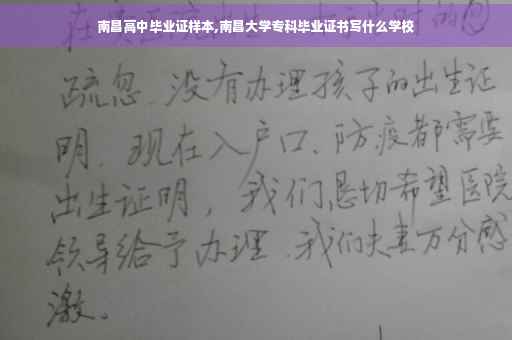 南昌高中毕业证样本,南昌大学专科毕业证书写什么学校
疏忽.没有办理孩子的出生证
明.现在入户口、防疫都需要
出生证明，我们恳切希望医院
领导给予办理.我们夫妻万分感
激。